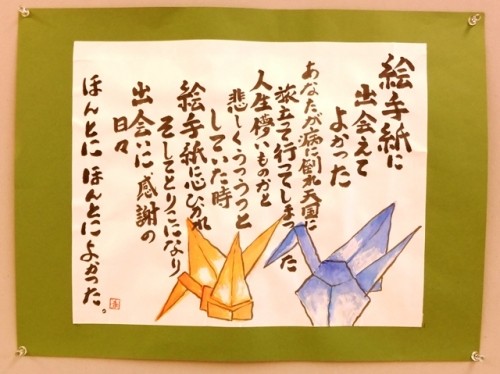 絵手紙に
出会えて
よかった
あなたが病に倒れ天国に
旅立って行ってしまった
人生儚いものかと
悲しくうつうつと
していた時
絵手紙に心ひかれ
そしてとりこになり
出会いに感謝の
日々
ほんとにほんとによかった。